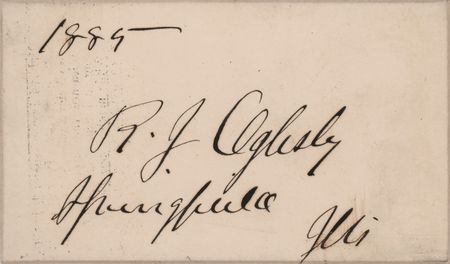 1885
R. J Oglesby
Springfield
Ills